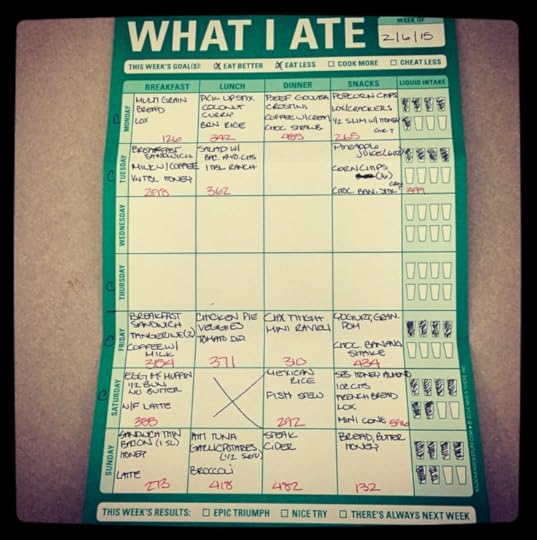 WHAT I ATE
WEEK OF
2/6/15
THIS WEEK'S GOAL(S): ☒ EAT BETTER ☒ EAT LESS ☐ COOK MORE ☐ CHEAT LESS
BREAKFAST LUNCH DINNER SNACKS LIQUID INTAKE
MONDAY
MULTI GRAIN
BREAD
LOX
126
PICK UP STIX
COCONUT
CURRY
BRN RICE
342
BEEF GOULASH
CROSTINI
COFFEE W/CREAM
CHOC
485
POPCORN CHIPS
LOX/CRACKERS
1/2 SLIM W/ HONEY
265
TUESDAY
BREAKFAST
SANDWICH
MILK W/ COFFEE
HONEY
298
SALAD W/
1 TBL RANCH
362
PINEAPPLE
JUICE
CORN CHIPS
(16)
CHOC BAN.
399
WEDNESDAY
THURSDAY
FRIDAY
BREAKFAST
SANDWICH
TANGERINE(2)
COFFEE W/
MILK
354
CHICKEN PIE
VEGGIES
TOMATO
371
CHX THIGH
MINI RAVIOLI
310
YOGURT, GRAN.
POM
CHOC BANANA
SHAKE
434
SATURDAY
EGG MCMUFFIN
1/2 BUN
NO BUTTER
N/F LATTE
388
MEXICAN
RICE
FISH STEW
292
HONEY ALMOND
FRENCH BREAD
LOX
MINI CONE
SUNDAY
SANDWICH THIN
BACON (1 SL)
HONEY
LATTE
273
AHI TUNA
GARLIC POTATOES
BROCCOLI
418
STEAK
CIDER
482
BREAD, BUTTER
HONEY
132
THIS WEEK'S RESULTS: ☐ EPIC TRIUMPH ☐ NICE TRY ☐ THERE'S ALWAYS NEXT WEEK